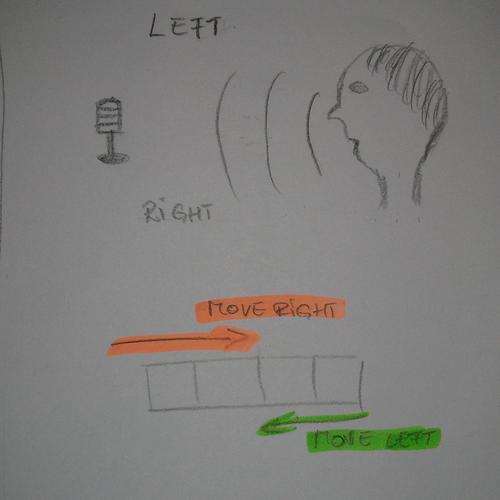 LEFT
RIGHT
MOVE RIGHT
MOVE LEFT